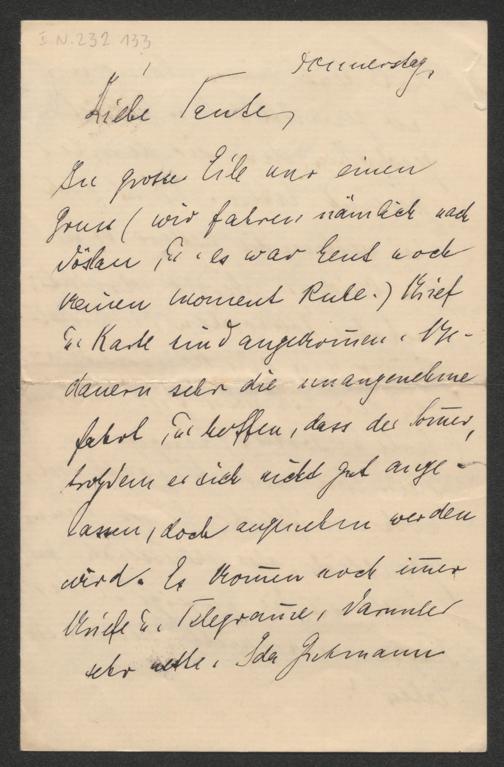 I N. 232 133
Donnerstag,
Liebe Tante,
In grosser Eile nur einen
Gruss (wir fahren nämlich nach
Vöslau, u. es war heut noch
keinen Moment Ruhe.) Brief
u. Karte sind angekommen. Be-
dauern sehr die unangenehme
Fahrt, u. hoffen, dass der Som̄er,
trotzdem er sich nicht gut ange-
lassen, doch angenehm werden
wird. Es kom̄en noch im̄er
Briefe u. Telegram̄e, darunter
sehr nette. Ida Gutmann